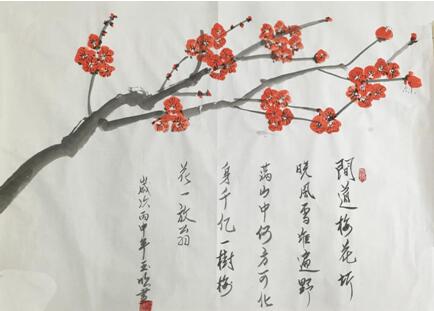 聞道梅花坼
晓風雪堆遍野
满山中何方可化
身千亿一樹梅
花一放翁
歲次丙申年王書